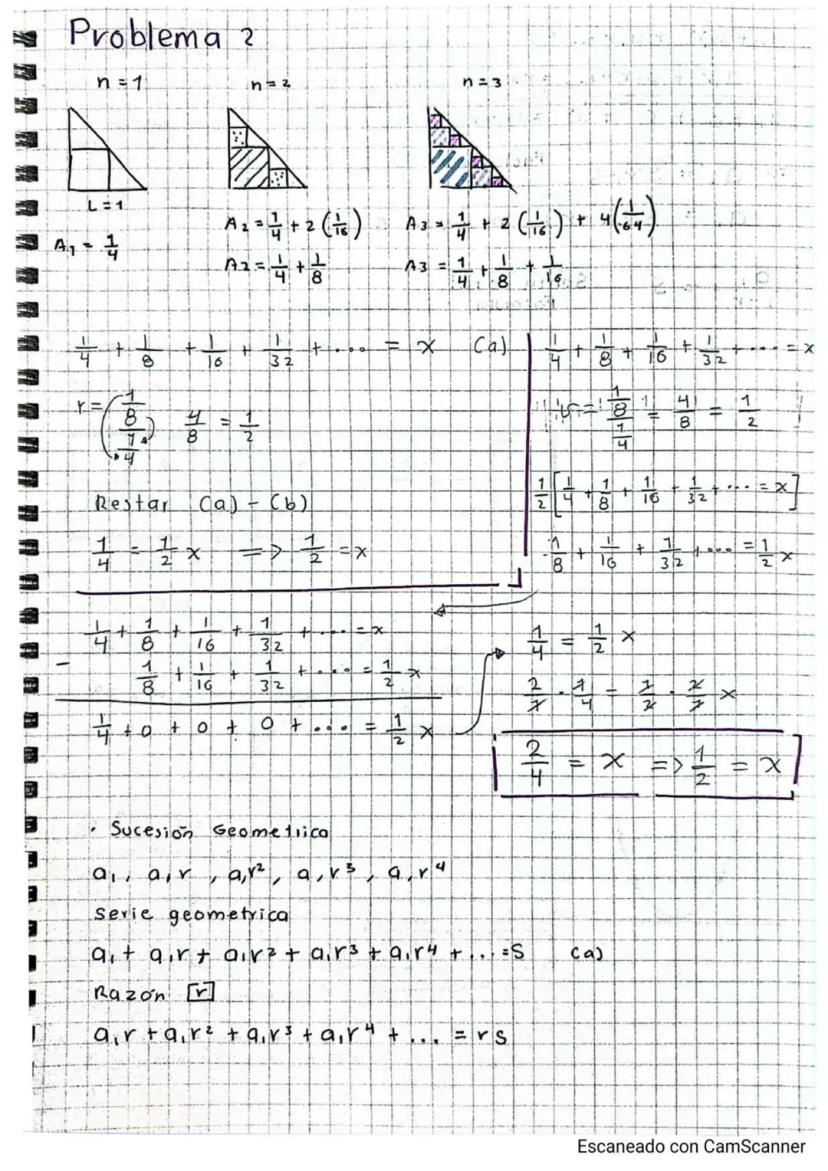 Problema 2
n=1
n=2
n=3
L=1
A₁ = 1/4
A₂ = 1/4 + 2(1/16)
A2 = 1/4 + 1/8
A3 = 1/4 + 2(1/16) + 4(1/64)
A3 = 1/4 + 1/8 + 1/16
1/4 + 1/8 + 1/16 + 1/32 + .... = x (a)
r = (1/8)/(1/4) 4/8 = 1/2
Restar (a) - (b)
1/4 = 1/2 x => 1/2 = x
1/4 + 1/8 + 1/16 + 1/32 + .... = x
r = (1/8)/(1/4) = 4/8 = 1/2
1/2 [1/4 + 1/8 + 1/16 + 1/32 + ... = x]
1/8 + 1/16 + 1/32 + ... = 1/2 x
1/4 + 1/8 + 1/16 + 1/32 + .... = x
- 1/8 + 1/16 + 1/32 + .... = 1/2 x
1/4 + 0 + 0 + 0 + ... = 1/2 x
1/4 = 1/2 x
2/1 · 1/4 = 1/2 · 2/1 x
2/4 = x => 1/2 = x
· Sucesión Geometrica
a₁, a₁r, a₁r², a₁r³, a₁r⁴
serie geometrica
a₁ + a₁r + a₁r² + a₁r³ + a₁r⁴ + ... = S (a)
Razón r
a₁r + a₁r² + a₁r³ + a₁r⁴ + ... = rS
Escaneado con CamScanner